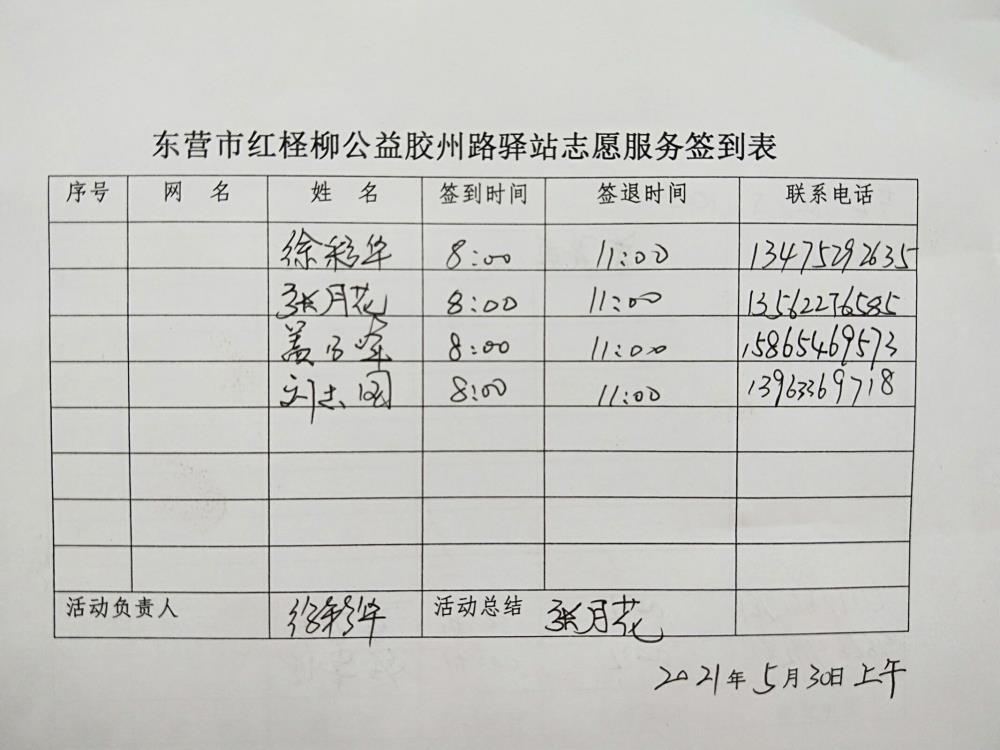 东营市红柽柳公益胶州路驿站志愿服务签到表
序号 网 名 姓 名 签到时间 签退时间 联系电话
徐彩华 8:00 11:00 13475292635
张月花 8:00 11:00 13562276585
盖 8:00 11:00 15865469573
刘志国 8:00 11:00 13963369718
活动负责人 徐彩华 活动总结 张月花
2021年5月30日上午